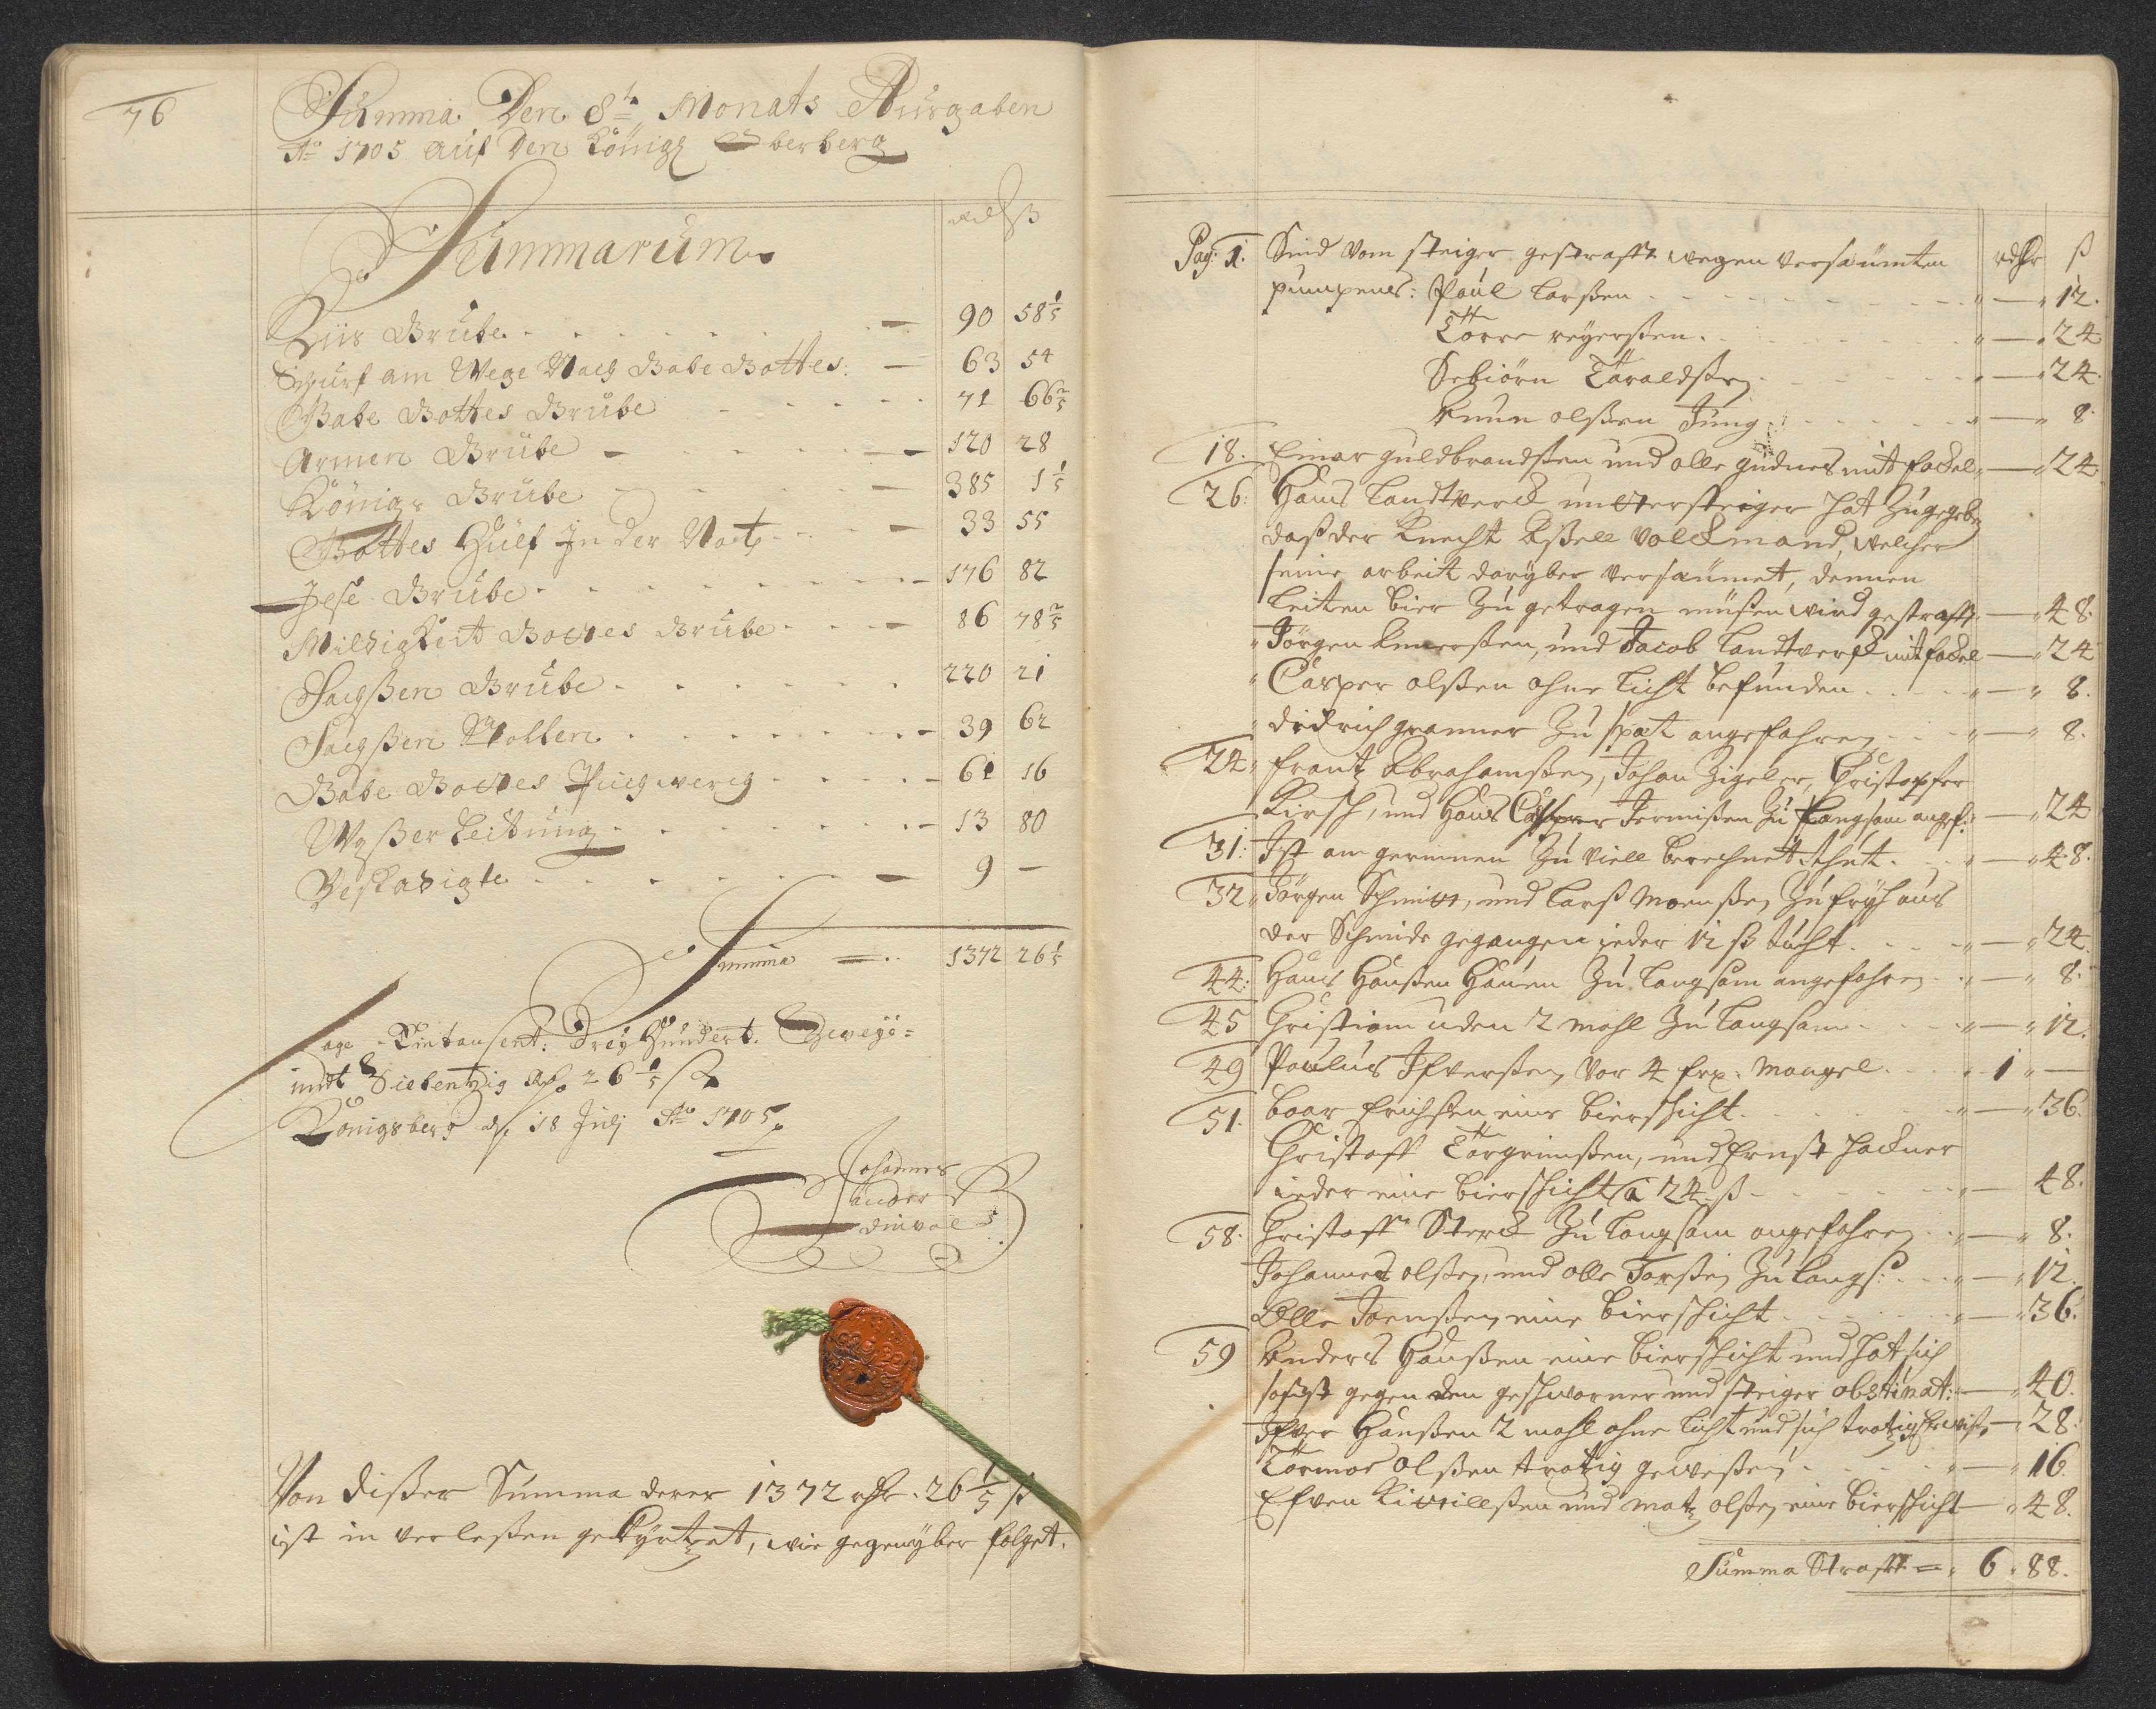 76
Summa Den 8t Monats Ausgaben
Ao 1705 auf Den Königl Oberberg
Summarum
rdl ß
Brube 90 58 1/5
Schurf am Wege Nach Gabe Gottes: 63 54
Gabe Gottes Grube 71 66 2/5
Armen Grube 120 28
Königs Grube 385 1 1/5
Gottes Hülf In der Noth 33 55
Grube 176 82
Mildigkeit Gottes Grube 86 78 2/5
Sachßen Grube 220 21
Sachßen Stollen 39 62
Gabe Gottes Puchwerch 61 16
Waßer Leitung 13 80
9 —
Summa 1372 26 1/5
Sage Eintausent: Dreÿ Hundert. Zweÿ=
undt Siebentzig Rh 26 1/5 ß
Königsberg d. 18 Julj Ao 1705
Johannes
Von dißer Summa derer 1372 rdr. 26 1/5 ß
ist in verleßen gekürtzet, wie gegenyber folget.
Pag: 1. Sind vom steiger gestrafft wegen versäumten rdlr ß
pumpens: Paul Larßen " — " 12.
Torre reyerßen. " — " 24
Sebiörn Taraldßen " — " 24.
Knun olßen Jung " — " 8.
18. Einar guldbrandßen und olle gudnes mit fackel " — " 24.
26: Hans Landtwerck untersteiger hat Zugegeben
daß der Knecht Aßell Volckmand, welcher
seine arbeit daryber versäumet, denen
leiten bier Zu getragen müßen wird gestrafft — " 48.
" Jörgen Knuerßen, und Jacob Landtwerck mit fackel — " 24
" Casper olßen ohne licht befunden " — " 8.
" didrich granner Zu spat angefahren " — " 8.
24. frantz Abrahamßen, Johan Zigeler, Christopher
Kirsch, und Hans Casper Jermißen Zu langsam angef: — " 24
31: Ist am germen Zu viell berechnet " — " 48.
32 Jörgen Schmitt, und Larß Moenßen Zu fryh aus
der Schmide gegangen ieder 12 ß " — " 24.
44: Hans Hanßen Hauen Zu langsam angefahren " — " 8.
45 Christian uden 2 mahl Zu langsam " — " 12.
49 Paulus Ifverßen vor 4 mangel " 1 " —
51. boar Erichßen eine bierschicht " — " 36.
Christoff Torgrimßen, und Ernst hackner
ieder eine bierschicht à 24 ß " — 48.
58: Christoff Sterck Zu langsam angefahren " — " 8.
Johannes olßen, und olle Torßen Zu langs: " — " 12.
Olle Toenßen eine bierschicht " — " 36.
59 Anders Hanßen eine bierschicht und hat sich
gegen den geschworner und steiger obstinat: — " 40.
Ifver Hanßen 2 mahl ohne licht und sich trotzig — " 28.
Tormoe Olßen trotzig geweßen " — " 16.
Efven Kittillßen und matz olßen eine bierschicht — " 48.
Summa Strafft = 6 " 88.